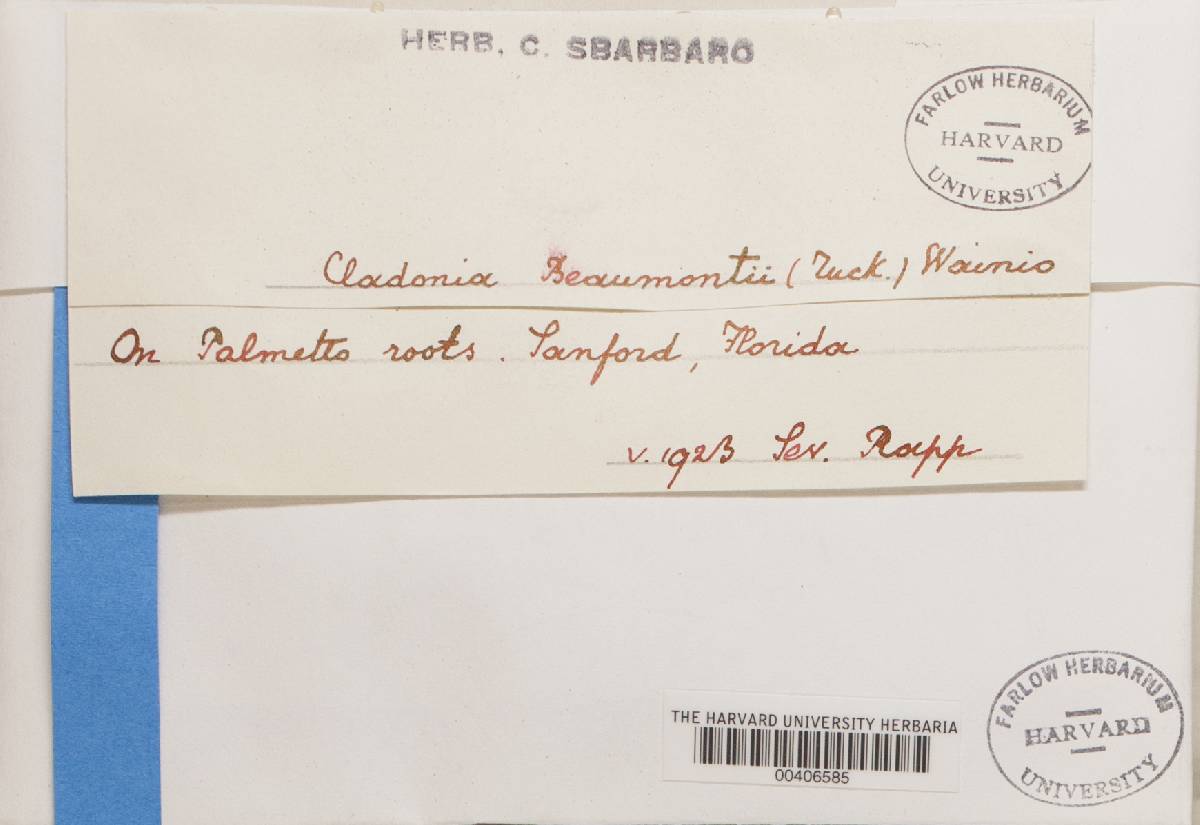 HERB. C. SBARBARO
FARLOW HERBARIUM
HARVARD
UNIVERSITY
Cladonia Beaumontii (Tuck.) Wainio
On Palmetto roots. Sanford, Florida
V. 1923 Sev. Rapp
THE HARVARD UNIVERSITY HERBARIA
00406585
FARLOW HERBARIUM
HARVARD
UNIVERSITY